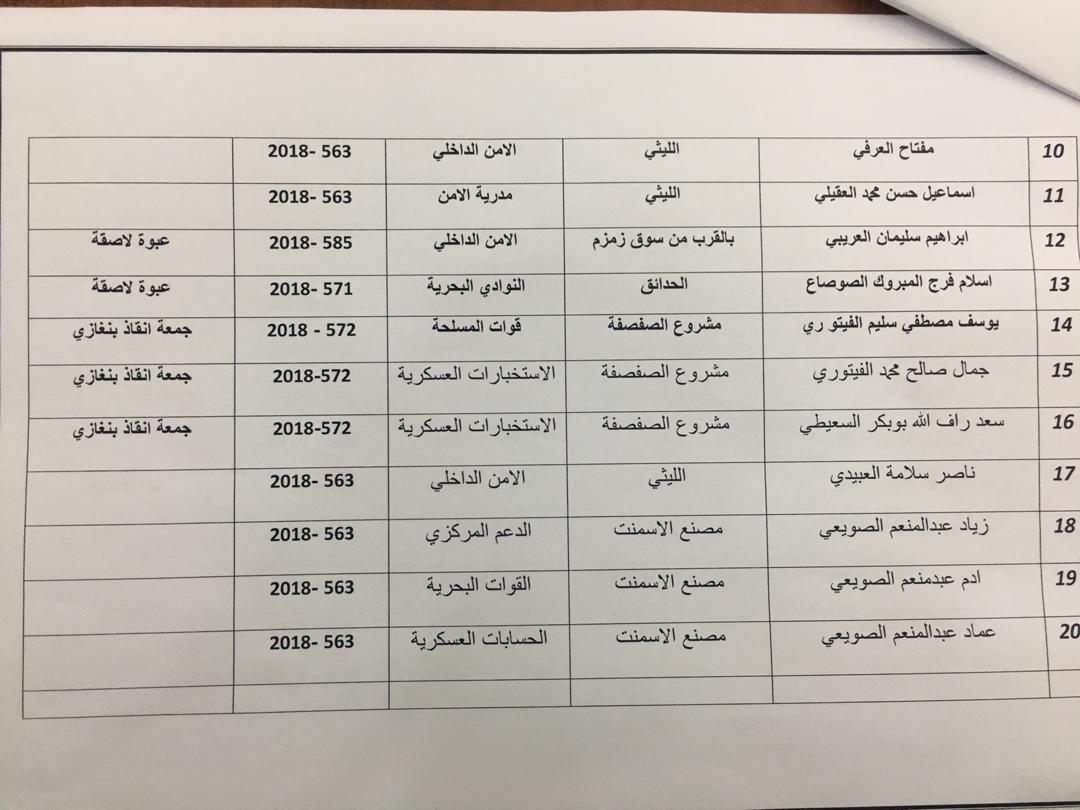 10 مفتاح العرفي الليثي الامن الداخلي 2018- 563
11 اسماعيل حسن محمد العقيلي الليثي مدرية الامن 2018- 563
12 ابراهيم سليمان العريبي بالقرب من سوق زمزم الامن الداخلي 2018- 585 عبوة لاصقة
13 اسلام فرج المبروك الصوصاع الحدائق النوادي البحرية 2018- 571 عبوة لاصقة
14 يوسف مصطفي سليم الفيتو ري مشروع الصفصفة قوات المسلحة 2018 - 572 جمعة انقاذ بنغازي
15 جمال صالح محمد الفيتوري مشروع الصفصفة الاستخبارات العسكرية 2018-572 جمعة انقاذ بنغازي
16 سعد راف الله بوبكر السعيطي مشروع الصفصفة الاستخبارات العسكرية 2018-572 جمعة انقاذ بنغازي
17 ناصر سلامة العبيدي الليثي الامن الداخلي 2018- 563
18 زياد عبدالمنعم الصويعي مصنع الاسمنت الدعم المركزي 2018- 563
19 ادم عبدمنعم الصويعي مصنع الاسمنت القوات البحرية 2018- 563
20 عماد عبدالمنعم الصويعي مصنع الاسمنت الحسابات العسكرية 2018- 563